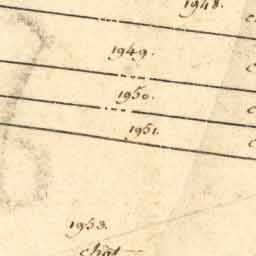 1948.
1949.
1950.
1951.
1953.
chat